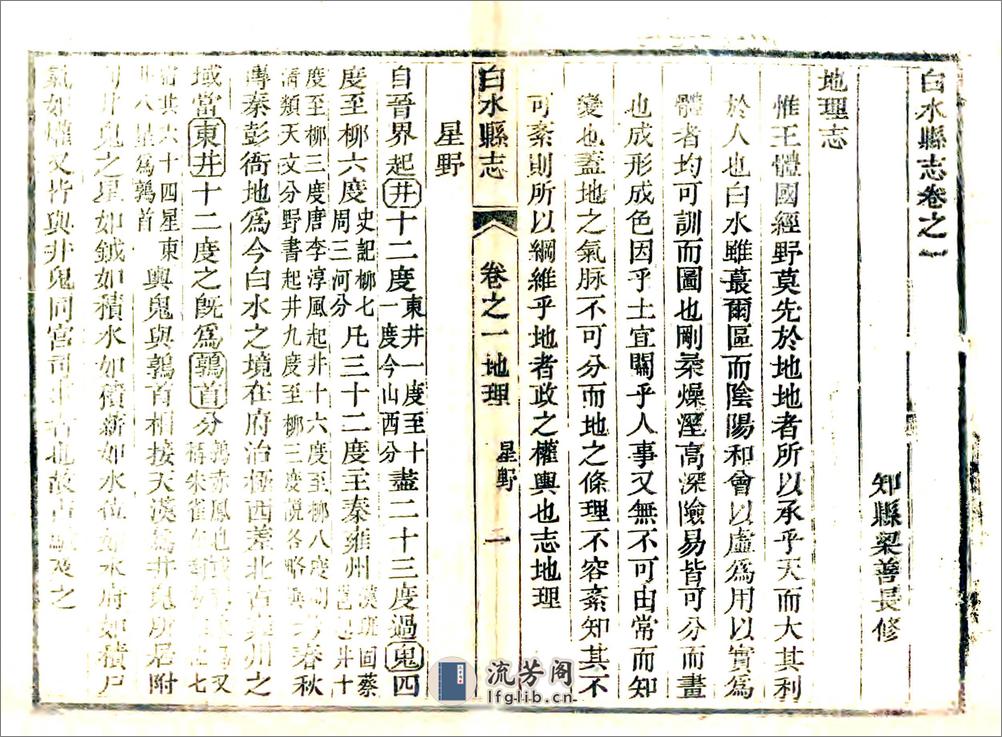 白水縣志卷之一
知縣梁善長修
地理志
惟王體國經野莫先於地地者所以承乎天而大其利
於人也白水雖蕞爾區而陰陽和會以虛爲用以實爲
體者均可訓而圖也剛柔燥溼高深險易皆可分而畫
也成形成色因乎土宜關乎人事又無不可由常而知
變也蓋地之氣脉不可分而地之條理不容紊知其不
可紊則所以綱維乎地者政之權輿也志地理
白水縣志 卷之一 地理 星野 二
星野
自晉界起井十二度東井一度至十一度今山西分盡二十三度過鬼四
度至柳六度史記柳七周三河分凡三十二度主秦雍州漢班固蔡邕起井十
度至柳三度唐李淳風起井十六度至柳八度
清類天文分野書起井九度至柳三度說各略春秋
傳秦彭衙地爲今白水之境在府治極西差北古雍州之
域當東井十二度之旣爲鶉首分
富共六十四星東八星爲鶉首輿鬼與鶉首相接天漢爲井鬼所居附
井鬼之星如鉞如積水如積薪如水位如水府如積尸
氣如爟又皆與井鬼同宮
流芳阁
lfglib.cn